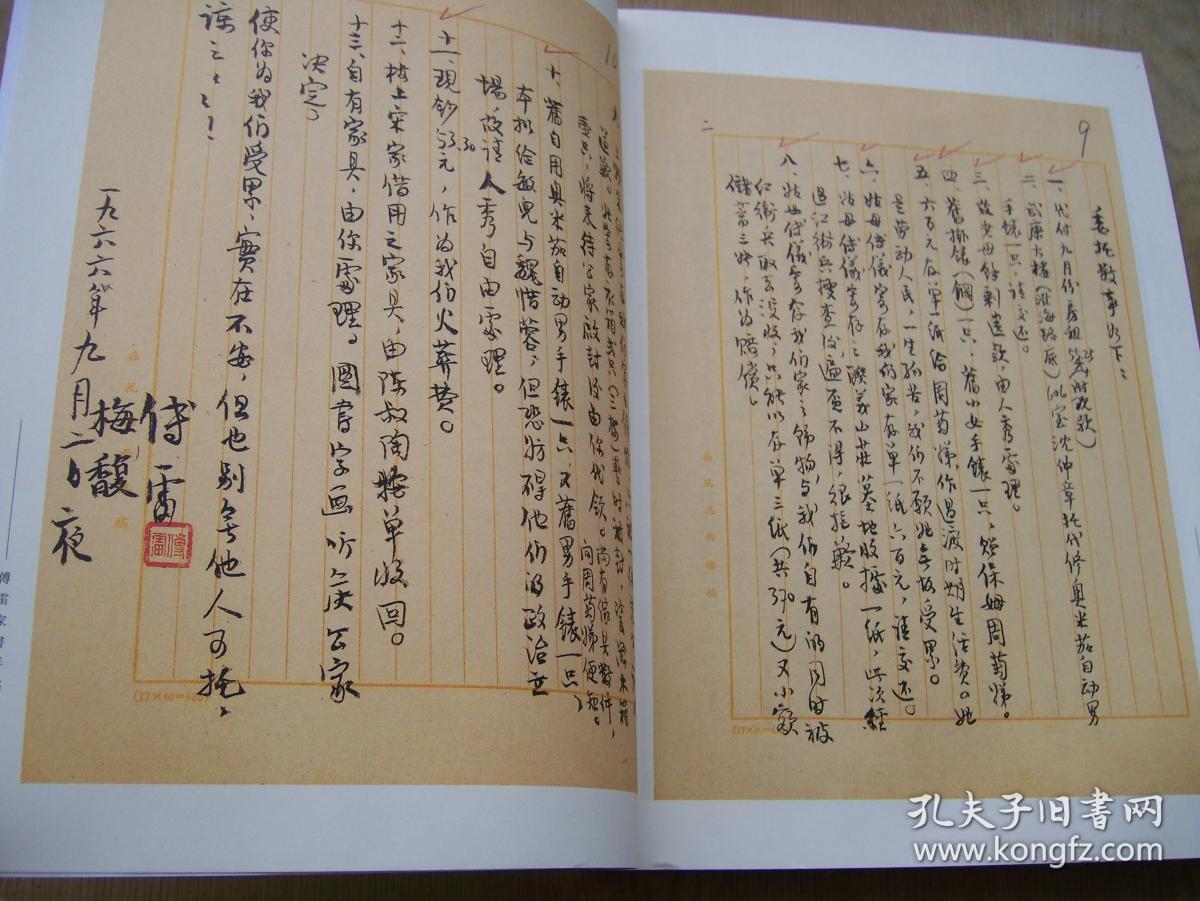 9
二
委托數事如下：
一、代付九月份房租
二、武康大樓（淮海路底）606室沈仲章托代修奥米茄自动男
手錶一只，請交还。
三、故老母余剩遺款，由人秀处理。
四、舊掛錶（鋼）一只，舊小女手錶一只，贈保姆周菊娣。
五、六百元存单一纸给周菊娣，作过渡时期生活费。她
是劳动人民，一生孤苦，我们不愿她无故受累。
六、姑母傅儀寄存我们家存单一纸六百元，請交还。
七、姑母傅儀寄存之聯義山莊墓地收據一纸，此次經
过红衛兵搜查后遍覓不得，很抱歉。
八、姑母傅儀寄存我们家之飾物，与我们自有的同时被
红衛兵取去没收，只能以存单三纸（共370元）又小額
儲蓄三张，作为賠償。
(17×40=680)
10
十、舊自用奥米茄自动男手錶一只，又舊男手錶一只，
本拟给敏兒与魏惜蓉，但恐妨碍他们的政治立
場，故請人秀自由处理。
十一、现鈔53.30元，作为我们火葬费。
十二、楼上宋家借用之家具，由陈叔陶按单收回。
十三、自有家具，由你處理。圖書字画听候公家
决定。
使你为我们受累，實在不安，但也别无他人可托，
谅之谅之！
傅雷
梅馥
一九六六年九月二日夜
傅雷
(17×40=680)
傅雷家書手稿
孔夫子旧书网
www.kongfz.com